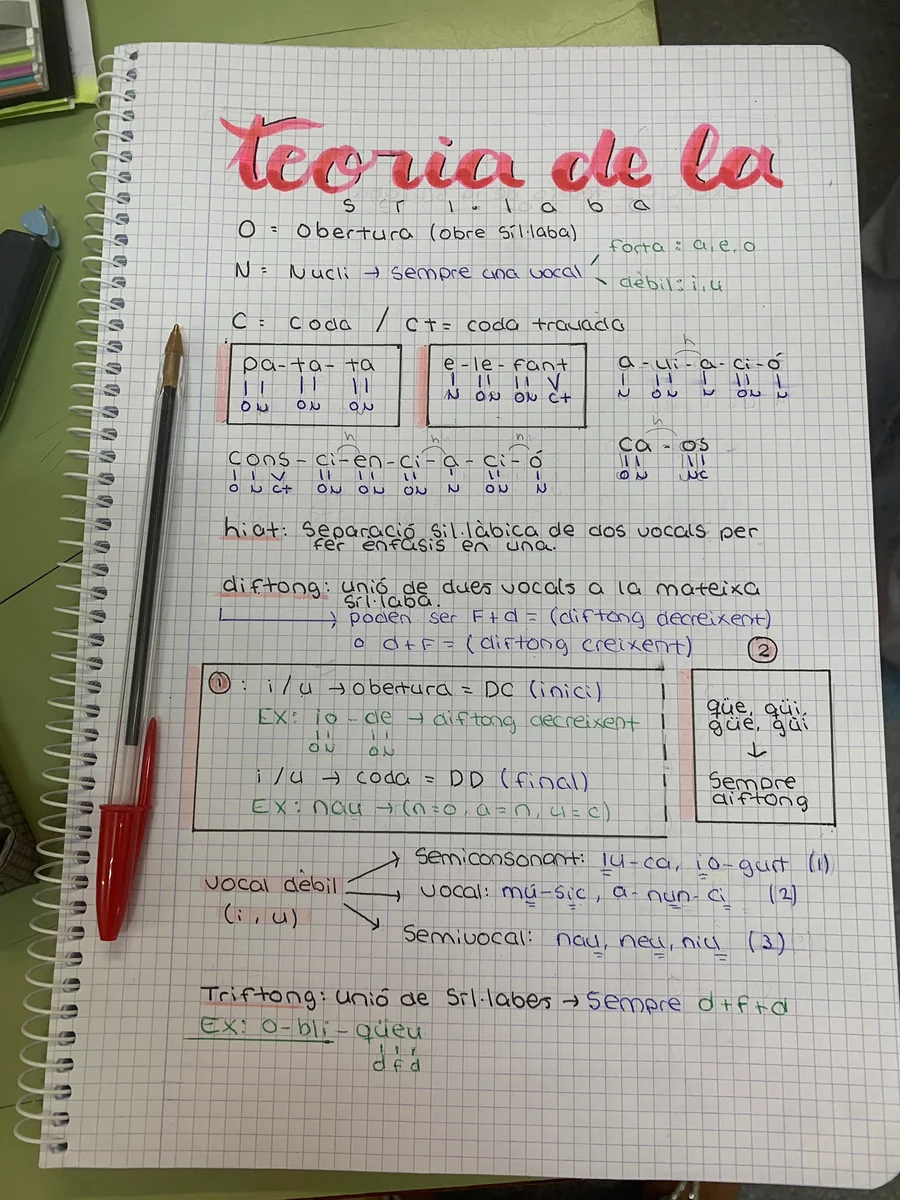 teoria de la
síl·laba
O = Obertura (obre síl·laba)
N = Nucli → sempre una vocal
forta : a, e, o
dèbil : i, u
C = coda / C+ = coda travada
pa - ta - ta
O N O N O N
e - le - fant
N O N O N C+
h
a - vi - a - ci - ó
N O N N O N N
h h h
cons - ci - en - ci - a - ci - ó
O N C+ O N O N O N N O N N
h
ca - os
O N N C
hiat: Separació sil·làbica de dos vocals per
fer enfasis en una.
diftong: unió de dues vocals a la mateixa
síl·laba.
→ poden ser F+d = (diftong decreixent)
o d+F = (diftong creixent)
① : i / u → obertura = DC (inici)
EX: io - de → diftong decreixent
O N O N
i / u → coda = DD (final)
EX: nau → (n=o, a=n, u=c)
②
qüe, qüi,
güe, güi
↓
Sempre
diftong
vocal dèbil
(i, u)
Semiconsonant: iu-ca, io-gurt (1)
vocal: mú-sic, a-nun-ci (2)
Semivocal: nau, neu, niu (3)
Triftong: unió de síl·labes → sempre d+f+d
EX: o-bli-qüeu
d f d